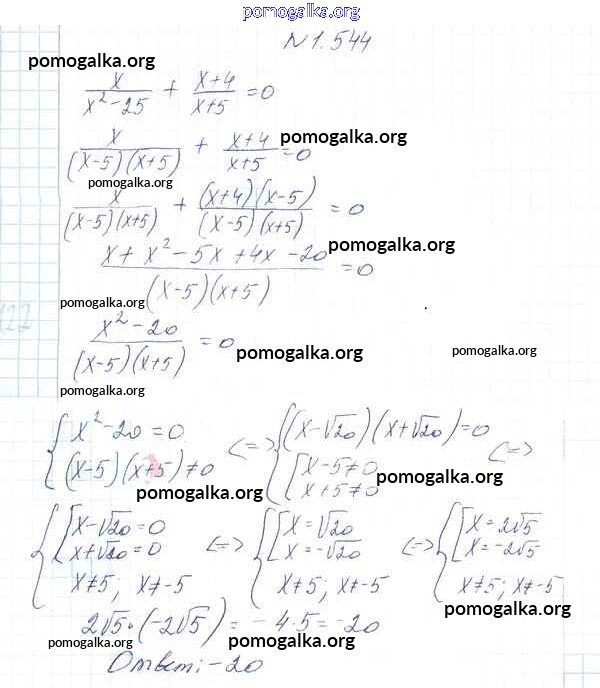 pomogalka.org
N 1.544
pomogalka.org
x/(x²-25) + (x+4)/(x+5) = 0
x/((x-5)(x+5)) + (x+4)/(x+5) = 0
pomogalka.org
pomogalka.org
x/((x-5)(x+5)) + ((x+4)(x-5))/((x-5)(x+5)) = 0
(x + x² - 5x + 4x - 20)/((x-5)(x+5)) = 0
pomogalka.org
pomogalka.org
(x² - 20)/((x-5)(x+5)) = 0
pomogalka.org
pomogalka.org
pomogalka.org
{ x² - 20 = 0 <=> { (x-√20)(x+√20) = 0 <=>
(x-5)(x+5) ≠ 0 [ x-5≠0
x+5≠0
pomogalka.org
pomogalka.org
{ [ x-√20 = 0 <=> { [ x = √20 <=> { [ x = 2√5
x+√20 = 0 x = -√20 x = -2√5
x≠5; x≠-5 x≠5; x≠-5 x≠5; x≠-5
pomogalka.org
2√5·(-2√5) = -4·5 = -20
pomogalka.org
pomogalka.org
Ответ: -20